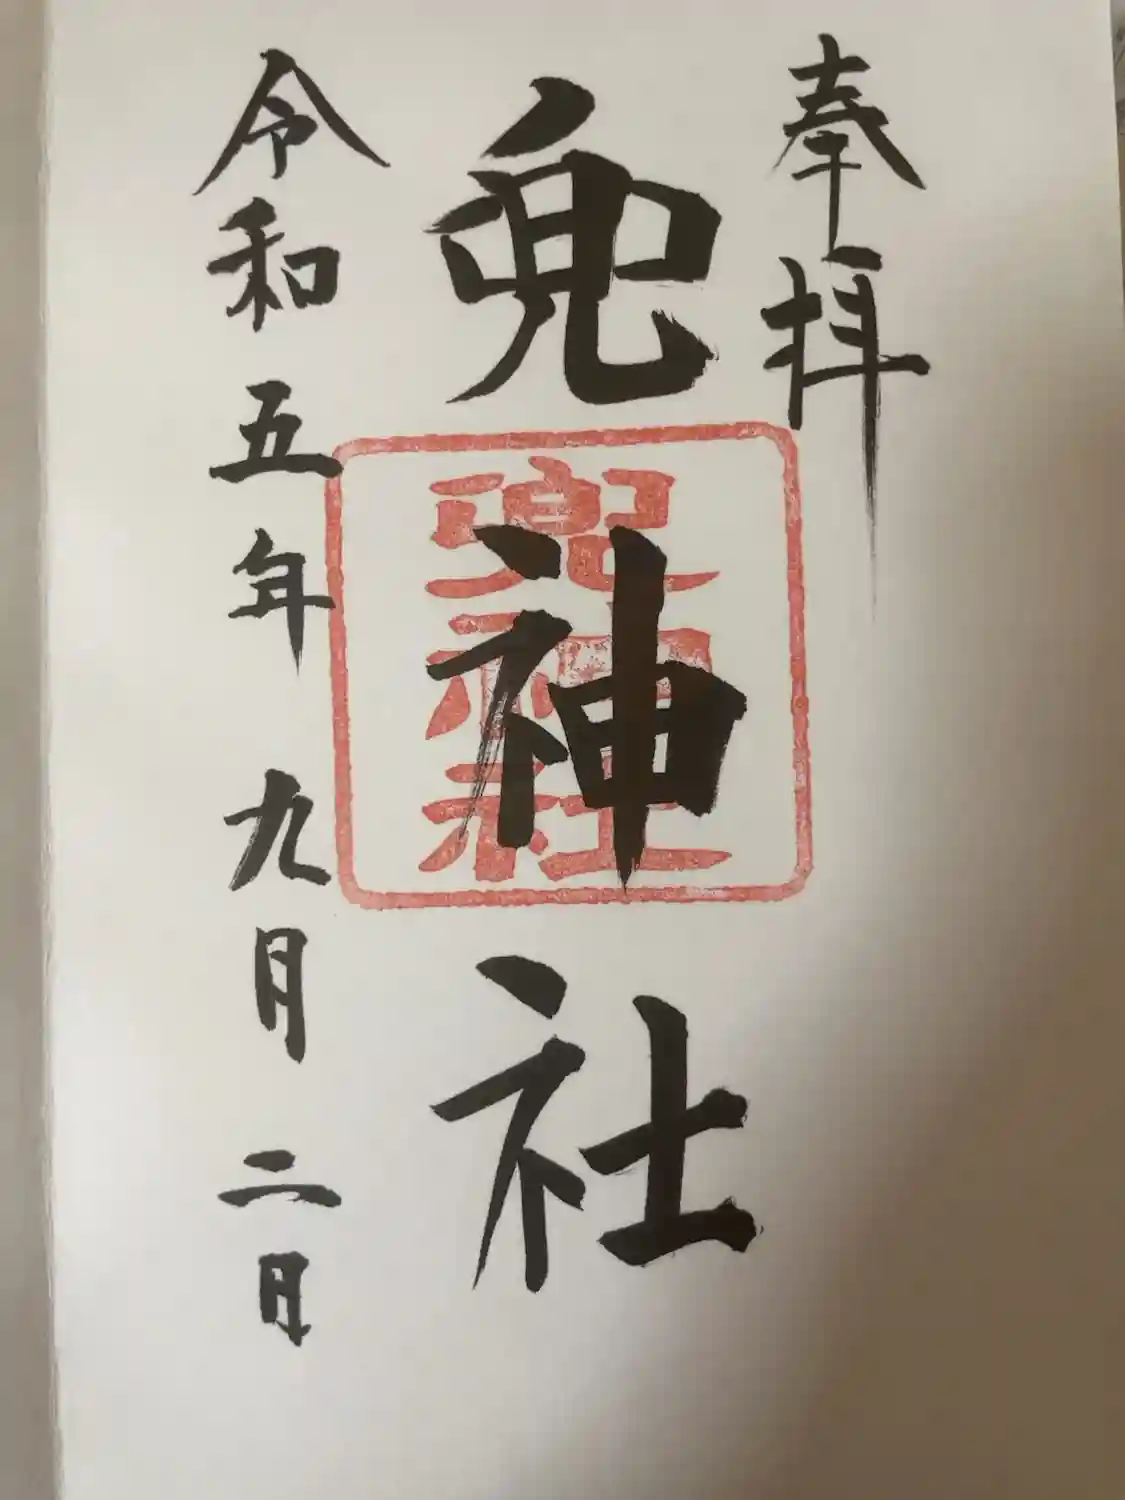 奉拝
兜神社
兜神社
令和五年九月二日